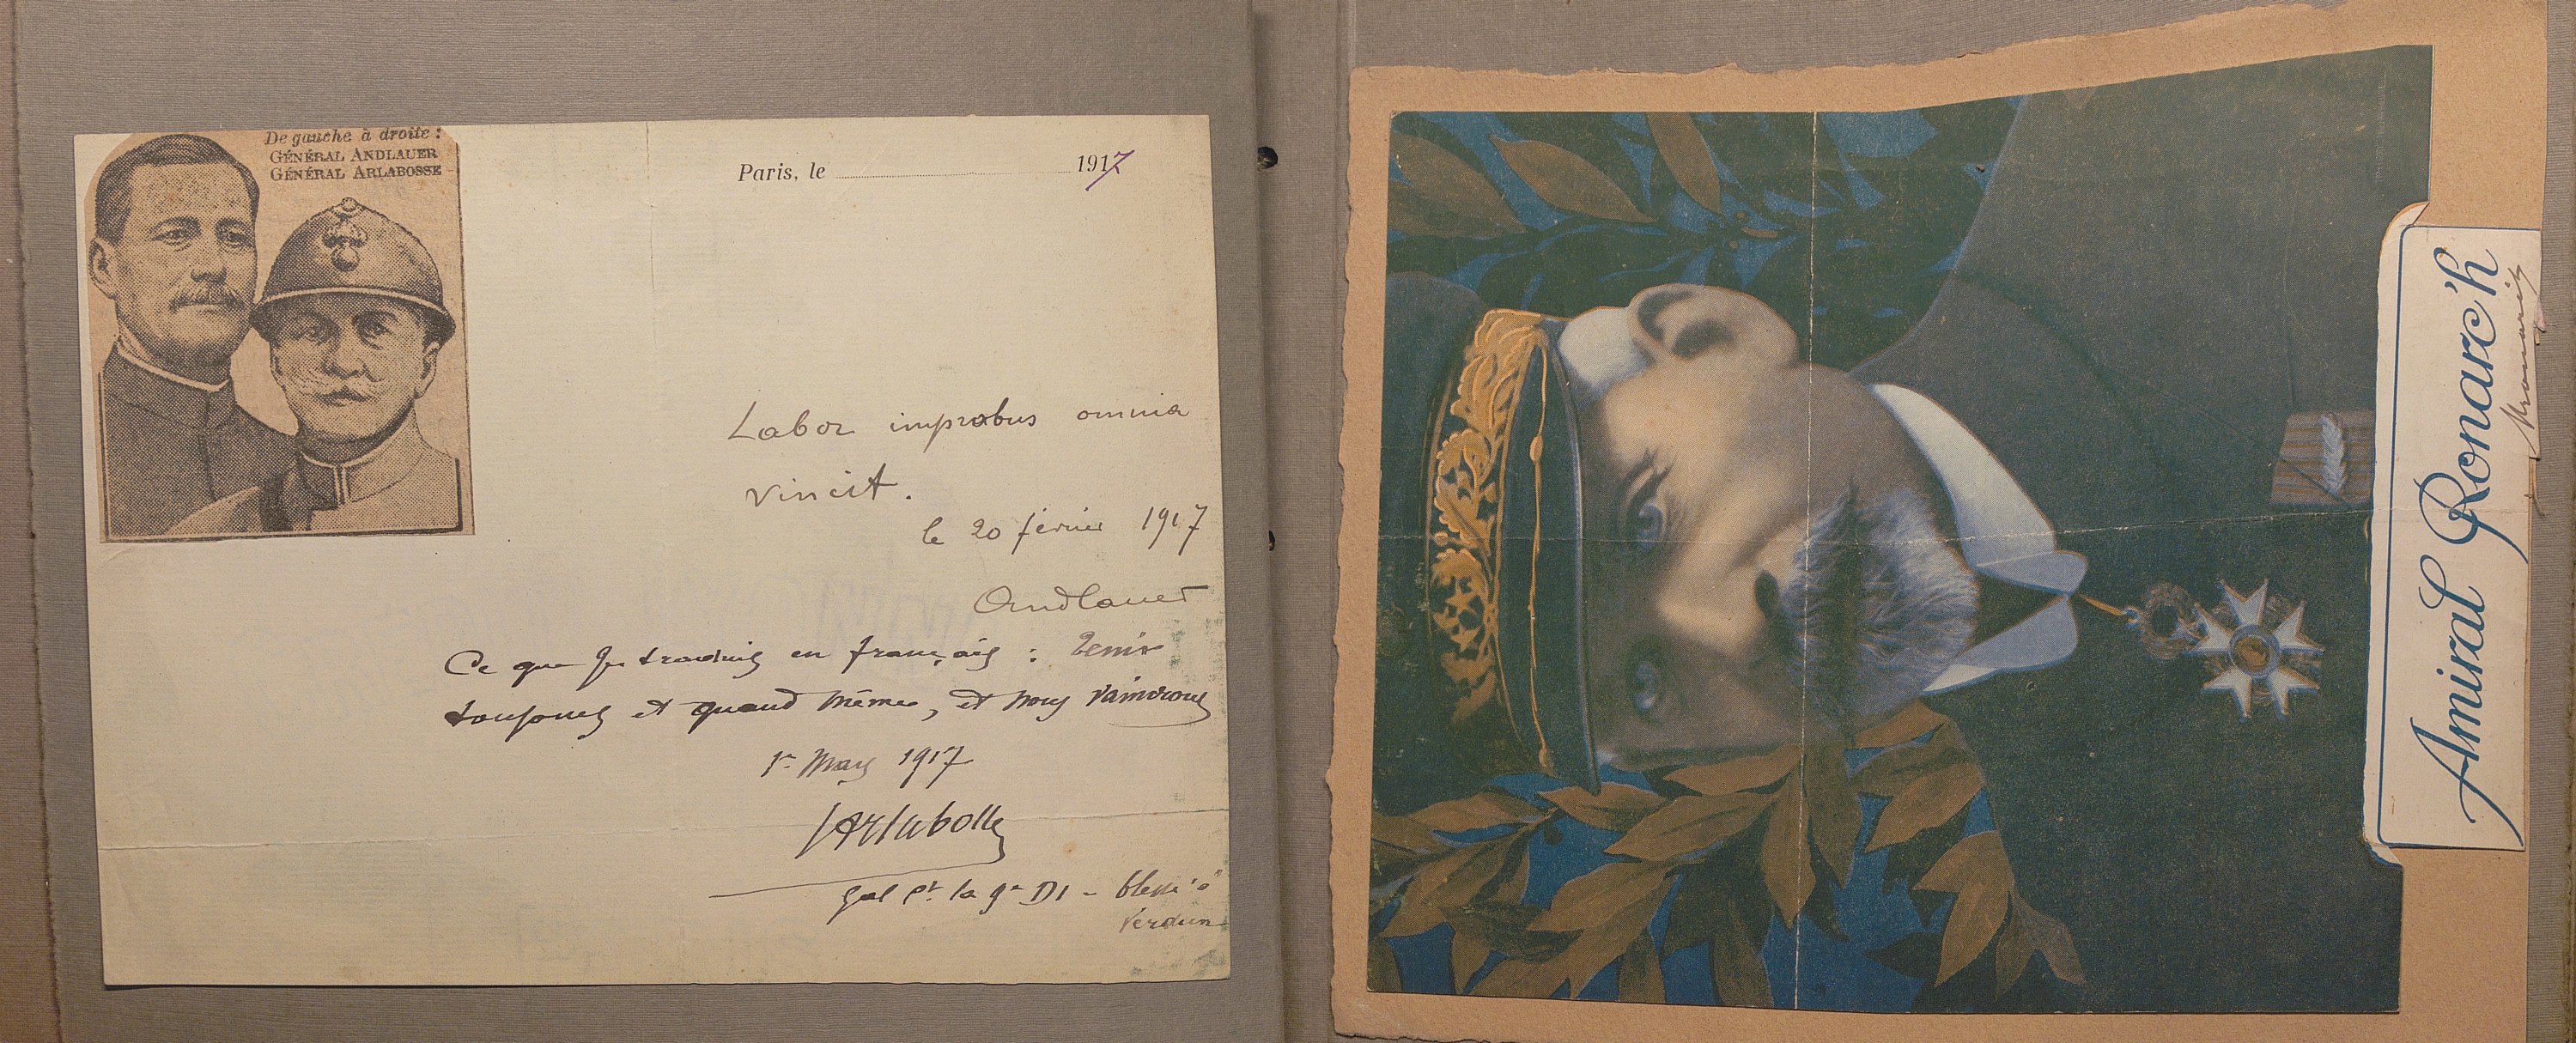 De gauche à droite :
GÉNÉRAL ANDLAUER
GÉNÉRAL ARLABOSSE
Paris, le 1917
Labor improbus omnia
vincit.
le 20 février 1917
Andlauer
Ce que je traduis en français : Tenir
toujours et quand même, et nous vaincrons
1er Mars 1917
Arlabosse
Gal Ct. la 9e DI - blessé à
Verdun
Amiral Ronarc'h